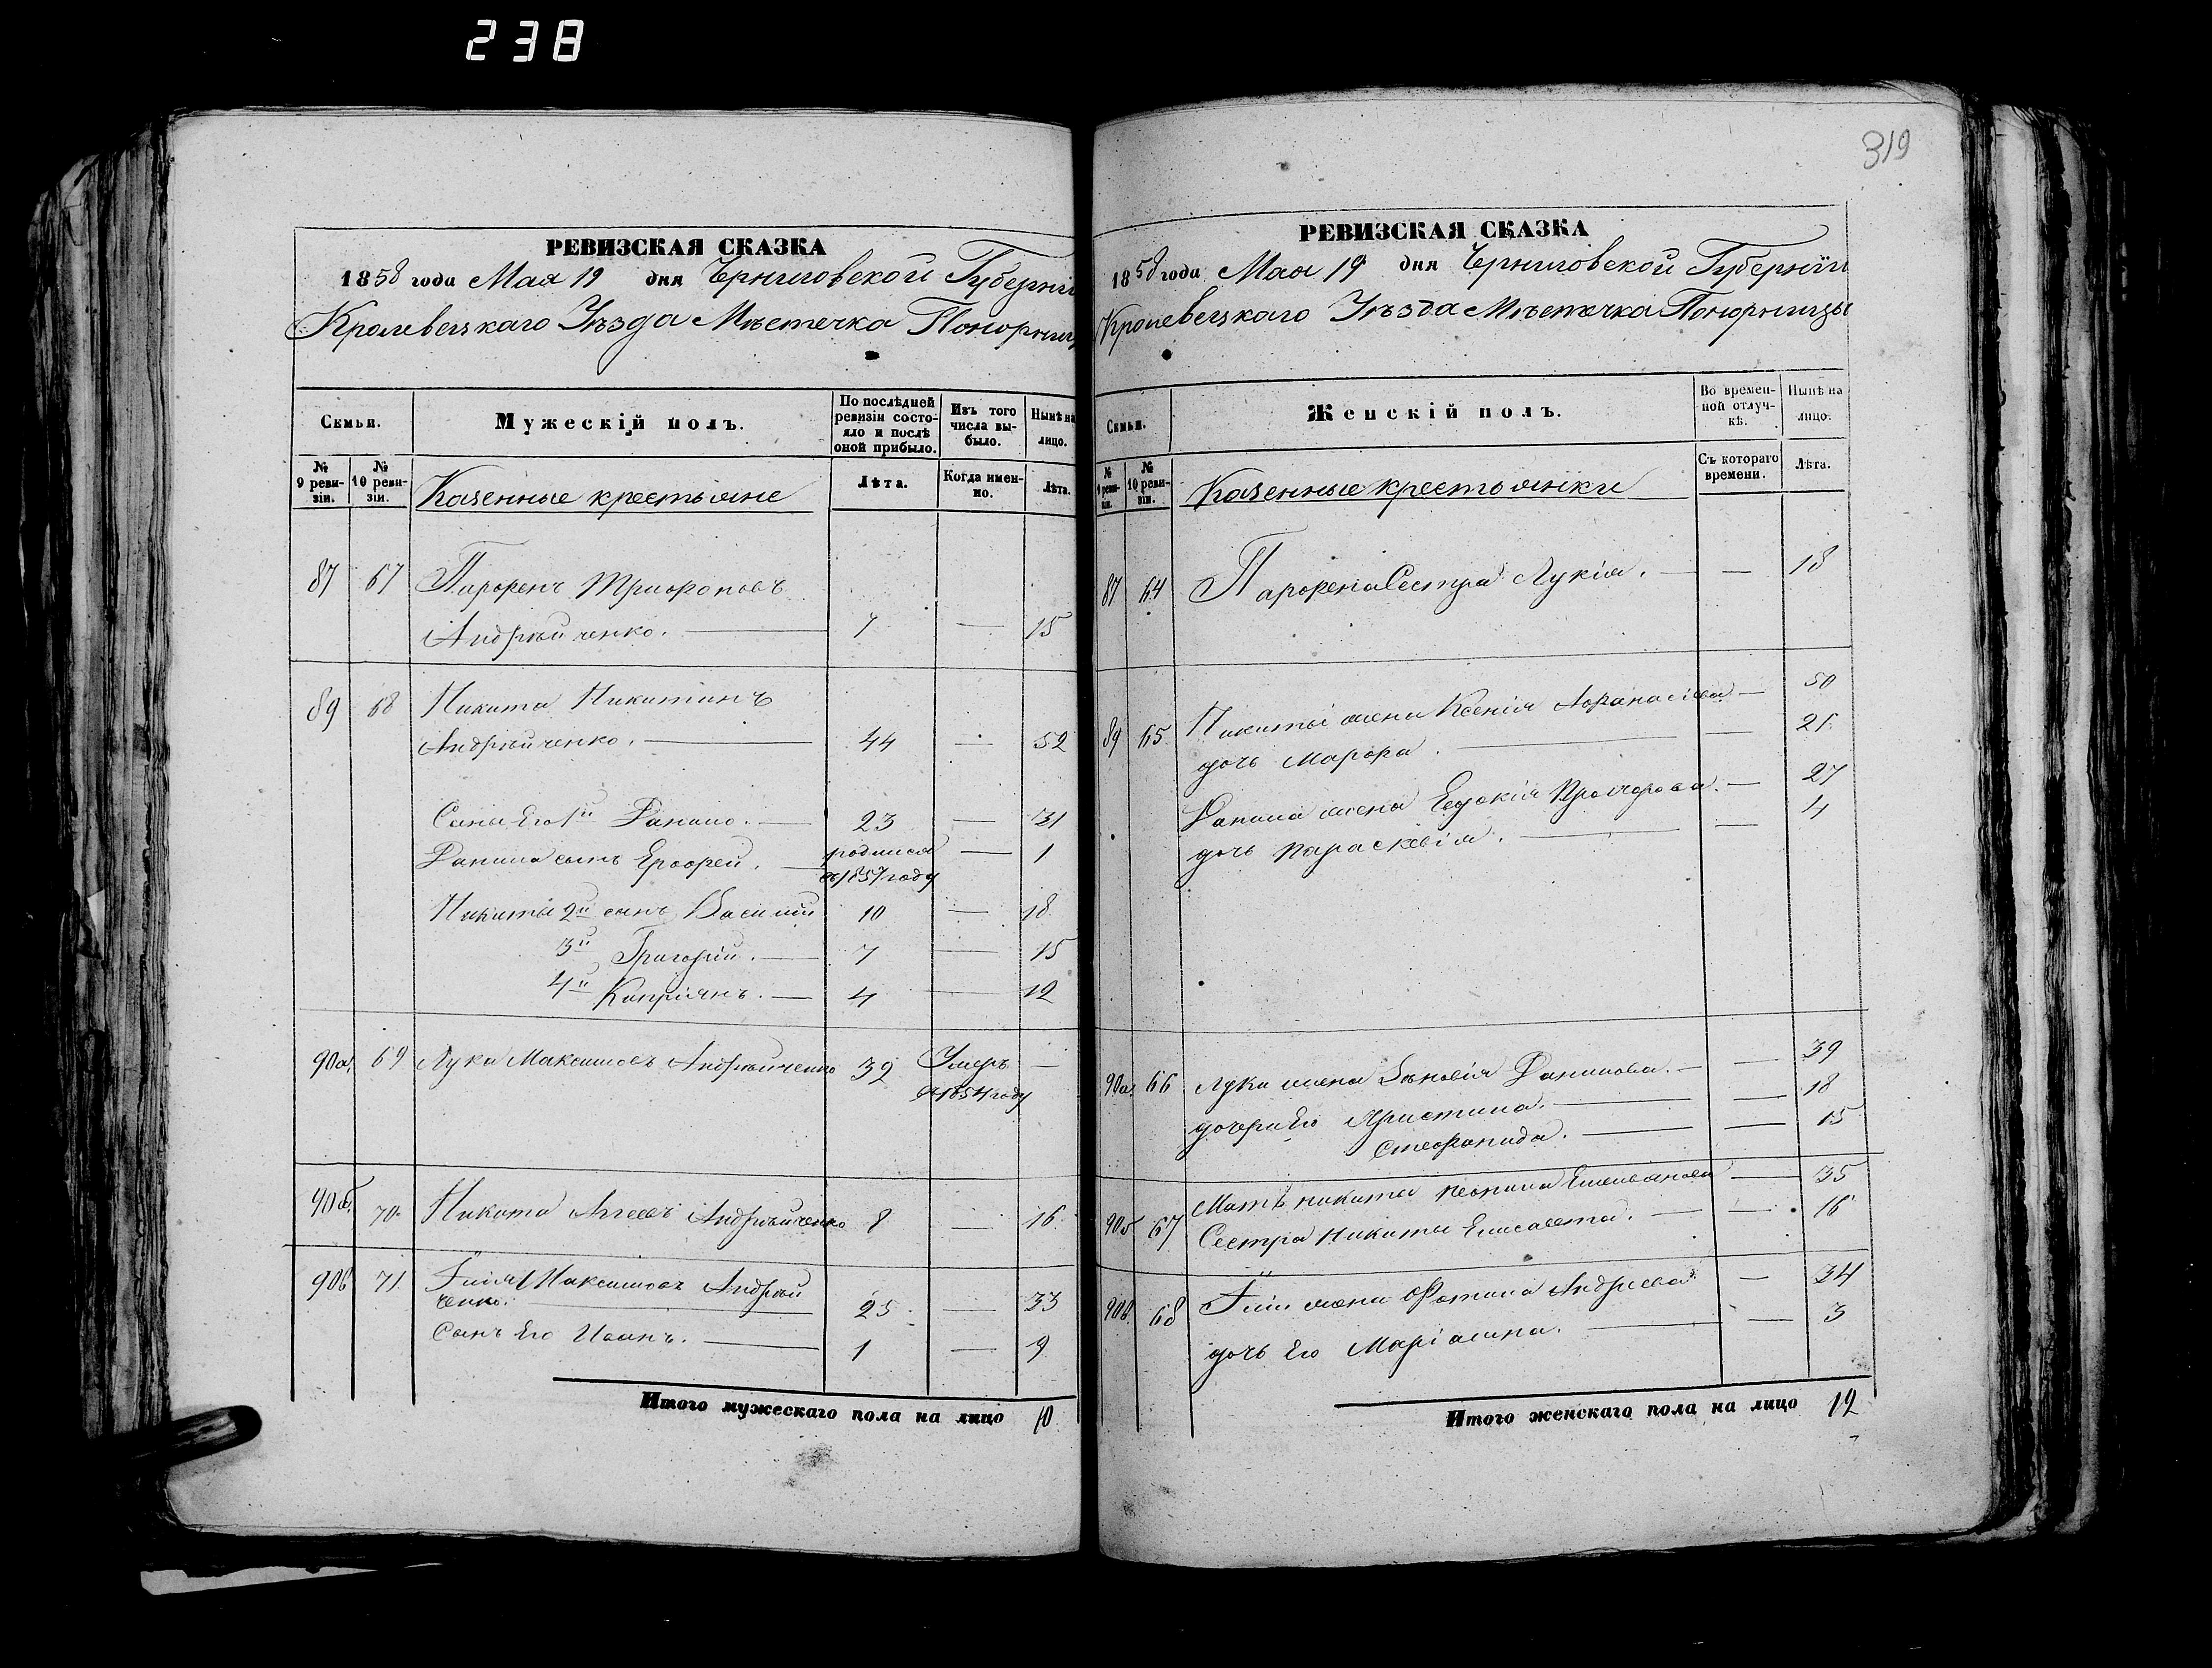 238
319
РЕВИЗСКАЯ СКАЗКА
1858 года Мая 19 дня Черниговской Губерніи
Кролевецкаго Уѣзда Мѣстечка Понорниц
Семьи.
Мужескій полъ.
По послѣдней ревизіи состояло и послѣ оной прибыло.
Изъ того числа выбыло.
Нынѣ на лицо.
№ 9 ревизіи.
№ 10 ревизіи.
Казенные крестьяне
Лѣта.
Когда именно.
Лѣта.
87 67 Парфенъ Трифоновъ
Андрѣйченко. 7 — 15
89 68 Никита Никитинъ
Андрѣйченко. 44 — 52
Сыны Его 1й Данило. 23 — 31
Данила сынъ Ерофей. родился в 1857 году — 1
Никиты 2й сынъ Василій 10 — 18
3й Григорій. 7 — 15
4й Кипріянъ. 4 — 12
90а 69 Лука Максимовъ Андрѣйченко 32 Умеръ —
в 1854 году
90б 70 Никита Андрѣйченко 8 — 16
90в 71 Максимовъ Андрѣй
ченко. 25 — 33
Сынъ Его Иванъ. 1 — 9
Итого мужескаго пола на лицо 10
РЕВИЗСКАЯ СКАЗКА
1858 года Мая 19 дня Черниговской Губерніи
Кролевецкаго Уѣзда Мѣстечка Понорницы
Семьи.
Женскій полъ.
Во временной отлучкѣ.
Нынѣ на лицо.
№ 9 ревизіи.
№ 10 ревизіи.
Казенные крестьянки
Съ котораго времени.
Лѣта.
87 64 Парфена Сестра Лукія. — 18
89 65 Никиты жена Ксенія Афанасіева — 50
дочь Марфа. — 21
Данила жена Евдокія Прохорова. — 27
дочь Параскевія. — 4
90а 66 Луки жена Зѣновія Данилова. — 39
дочери Его Христина. — 18
Стефанида. — 15
90б 67 Мать Никиты — 35
Сестра Никиты Елисавета. — 16
90в 68 жена Фотина Андреева — 34
дочь Его Маріамна. — 3
Итого женскаго пола на лицо 12